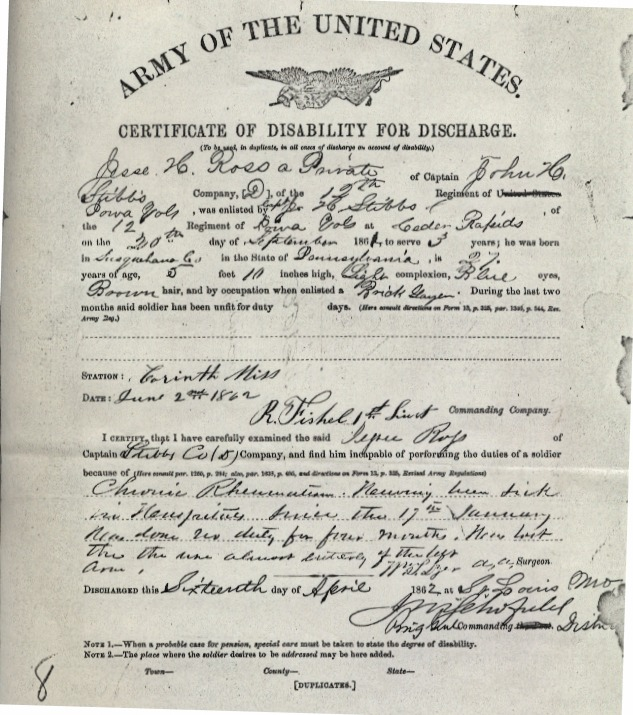 ARMY OF THE UNITED STATES.
CERTIFICATE OF DISABILITY FOR DISCHARGE.
(To be used, in duplicate, in all cases of discharge on account of disability.)
Jesse H. Ross a Private of Captain John H.
Stibbs Company, (D), of the 12th Regiment of United States
Iowa Vols, was enlisted by Capt J H Stibbs, of
the 12 Regiment of Iowa Vols at Ceder Rapids
on the 20th day of September 1861, to serve 3 years; he was born
in Susquehana Co in the State of Pennsylvania, is 27
years of age, 5 feet 10 inches high, Light complexion, Blue eyes,
Brown hair, and by occupation when enlisted a Brick Layer. During the last two
months said soldier has been unfit for duty days. (Here consult directions on Form 13, p. 325, par. 1245, p. 244, Rev.
Army Reg.)
STATION: Corinth Miss
DATE: June 2nd 1862
R. Fishel 1st Lieut Commanding Company.
I CERTIFY, that I have carefully examined the said Jesse Ross of
Captain Stibbs Co (D) Company, and find him incapable of performing the duties of a soldier
because of (Here consult par. 1260, p. 244; also, par. and directions on Form 13, p. 325, Revised Army Regulations)
Chronic Rheumatism. Haveing been sick
in Hauspitals since the 17th January
Has done no duty for four months. Has lost
the the use almost entirely of the left
Arm. Surgeon.
DISCHARGED this Sixteenth day of April 1862 at St Louis Mo
J M Schofield
Brig Genl Commanding the Distr
NOTE 1.—When a probable case for pension, special care must be taken to state the degree of disability.
NOTE 2.—The place where the soldier desires to be addressed may be here added.
Town— County— State—
[DUPLICATES.]
8